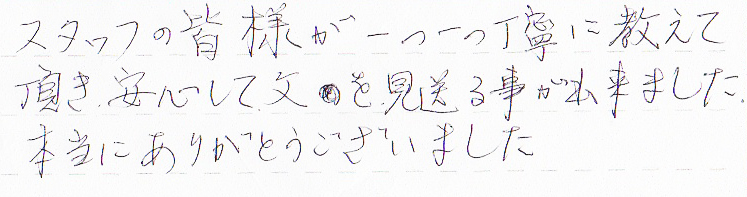 スタッフの皆様が一つ一つ丁寧に教えて
頂き、安心して、父を見送る事が出来ました。
本当にありがとうございました